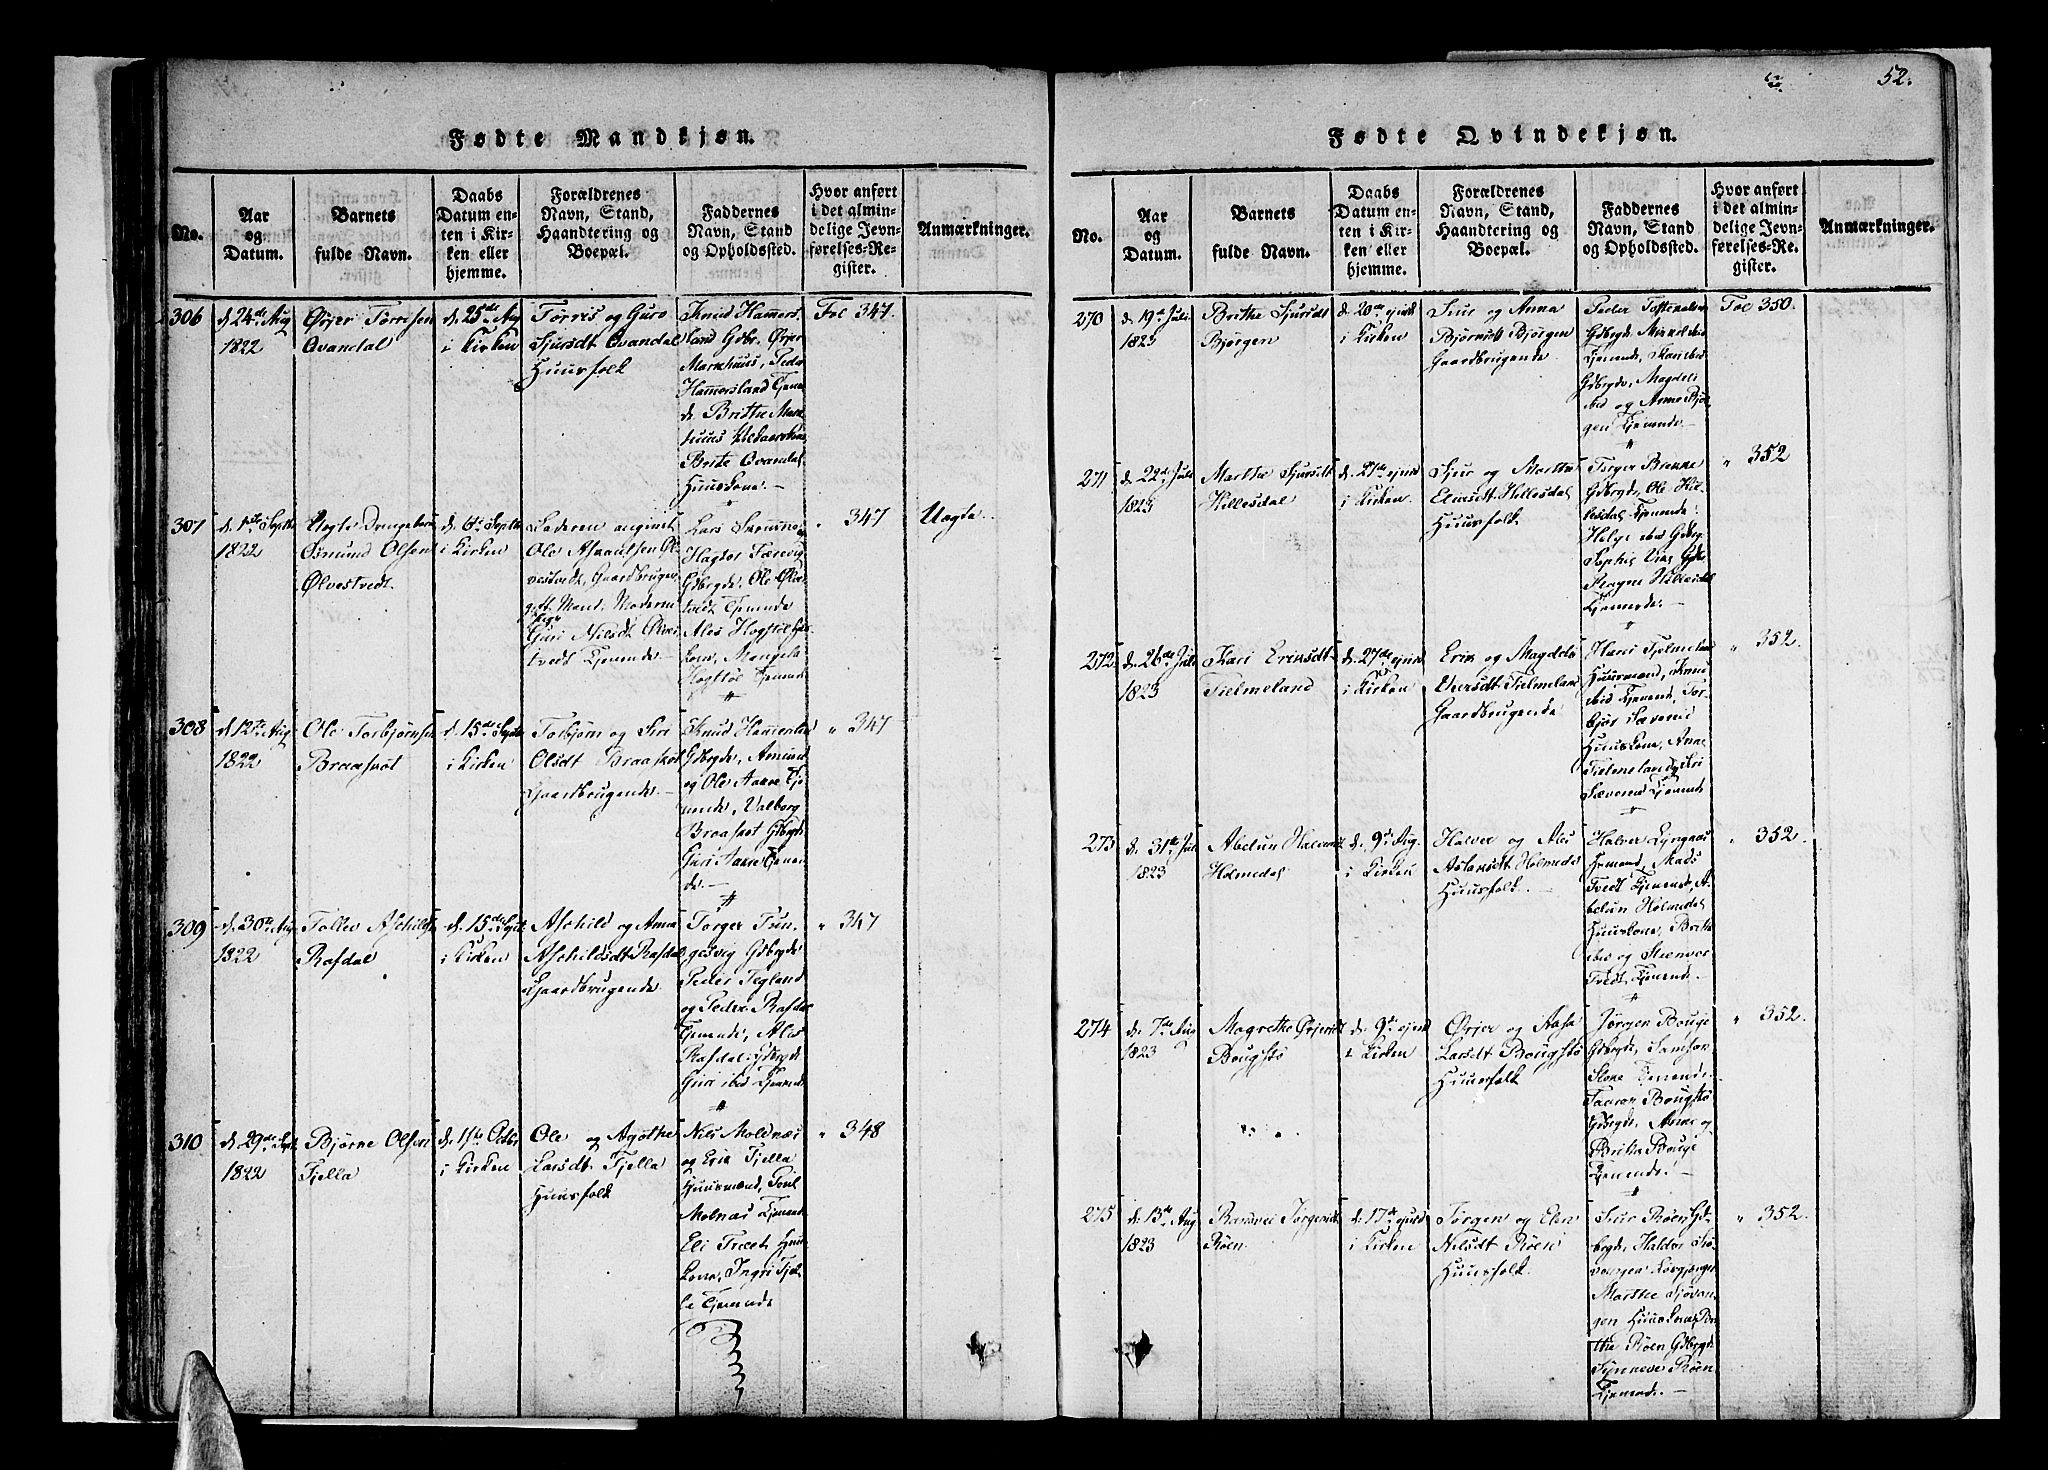 52.
Fødte Mandkjøn.
No.
Aar
og
Datum.
Barnets
fulde Navn.
Daabs
Datum en-
ten i Kir-
ken eller
hjemme.
Forældrenes
Navn, Stand,
Haandtering og
Boepæl.
Faddernes
Navn, Stand
og Opholdssted.
Hvor anført
i det almin-
delige Jevn-
førelses-Re-
gister.
Anmærkninger.
306
d. 24de Aug
1822
Ørjer Torrisen
Qvandal
d. 25de Aug
i Kirken
Torris og Guro
Sjursdt Qvandal
Huusfolk
Knud Hammers
land Gdbr. Ørjer
Markhuus, Peder
Hammersland Tjenen
de. Brithe Mark
huus
Brite Qvandal
Huuskone. —
Fol 347
307
d. 1ste Septbr
1822
Uægte Drengebarn
Osmund Olsen
Ølvestvedt.
d. 6te Septbr
i Kirken
Faderen angivet
Ole Asmundsen Øl
vestvedt, Gaardbruger
gift Mand. Moderen
Pige
Guri Nilsdt Ølves
tvedt Tjenende. —
Lars
Gdbrgde. Ole Ølves
tvedt Tjenende
Ales Hogstøl Huus
kone, Mangela
Hogstøl Tjenend
" 347
Uægte
308
d. 12te Aug
1822
Ole Torbjørnsen
Braaknot
d. 15de Septbr
i Kirken
Torbjørn og Siri
Olsdt Braaknot
Gaardbrugende. —
Knud Hammerslnd
Gdbrgde, Amund
og Ole Aarre Tje
nende, Valborg
Braaknot Gdbrgde
Guri Aarre Tjenen
de. —
" 347
309
d. 30te Aug
1822
Tollev Aschilds
Rafdal
d. 15de Sept
i Kirken
Aschild og Anna
Aschildsdt Rafdal
Gaardbrugende
Torger Tun
gesvig Gdbrgde
Peder Tegland
og Peder Rafdal
Tjenende, Ales
Rafdal Gdbrgde
Guri ibid Tjenend
" 347
310
d. 29de Sept
1822
Bjørne Olsen
Fjella
d. 1ste Octbr
i Kirken
Ole og Agothe
Larsdt Fjella
Huusfolk
Nils Moldnæs
og Erik Fjella
Huusmænd, Poul
Molnæs Tjenend
Eli Træet Huus
kone, Ingri Fjel
la Tjenende
" 348
Fødte Qvindekjøn.
No.
Aar
og
Datum.
Barnets
fulde Navn.
Daabs
Datum en-
ten i Kir-
ken eller
hjemme.
Forældrenes
Navn, Stand,
Haandtering og
Boepæl.
Faddernes
Navn, Stand
og Opholdssted.
Hvor anført
i det almin-
delige Jevn-
førelses-Re-
gister.
Anmærkninger.
270
d. 19de Juli
1823
Brithe Sjursdt
Bjørgen
d. 20de ejusd
i Kirken
Siur og Anna
Bjørnsdt Bjørgen
Gaardbrugende.
Peder
Gdbrgde.
Tjenende,
Gdbrgde, Magdeli
ibid og Anna Bjør
gen Tjenende. —
Fol 350.
271
d. 22de Juli
1823
Marthe Sjursdt
Hillesdal
d. 27de ejusd
i Kirken
Sjur og Marthe
Einersdt Hillesdal
Huusfolk
Torger Brekke
Gdbrgde, Ole Hil
lesdal Tjenende.
Helge ibid Gdbrg
Magne Hillesdal
Tjenende. —
" 352
272
d. 26de Juli
1823
Kari Eriksdt
Tielmeland
d. 27de ejusd
i Kirken
Erik og Magdele
Iversdt Tielmeland
Gaardbrugende
Hans Tjelmeland
Huusmand,
ibid Tjenend, Tor
bjør Sævereid
Huuskone, Anna
Tielmeland
Sævereid Tjenend
" 352.
273
d. 31te Juli
1823
Abelun Halversdt
Holmedal
d. 9de Aug.
i Kirken
Halver og Ales
Aslaksdt Holmedal
Huusfolk. —
Halver Lyngaas
Huusmand, Mads
Tvedt Tjenende, A
belun Holmedal
Huuskone, Brithe
ibid og Steenvor
Tvedt Tjenende.
" 352.
274
d. 7de Aug
1823
Magrethe Ørjersdt
Bougstø
d. 9de ejusd
i Kirken
Ørjer og Aasa
Larsdt Bougstø
Huusfolk
Jørgen Bouge
Gdbrgde, Samson
Stone Tjenende.
Bougstø
Gdbrgde, Anna og
Britha Bouge
Tjenende.
" 352.
275
d. 13de Aug
1823
Ransvei Jørgensdt
Røen.
d. 17de ejusd
i Kirken
Jørgen og Elen
Nilsdt Røen
Huusfolk.
Siur Røen Gd
brgde, Haldor Sjø
vangen Kirkesanger
Marthe Sjøvan
gen Huuskone, Bri
the Røen Gdbrgde
Synneve Røen
Tjenende. —
" 352.